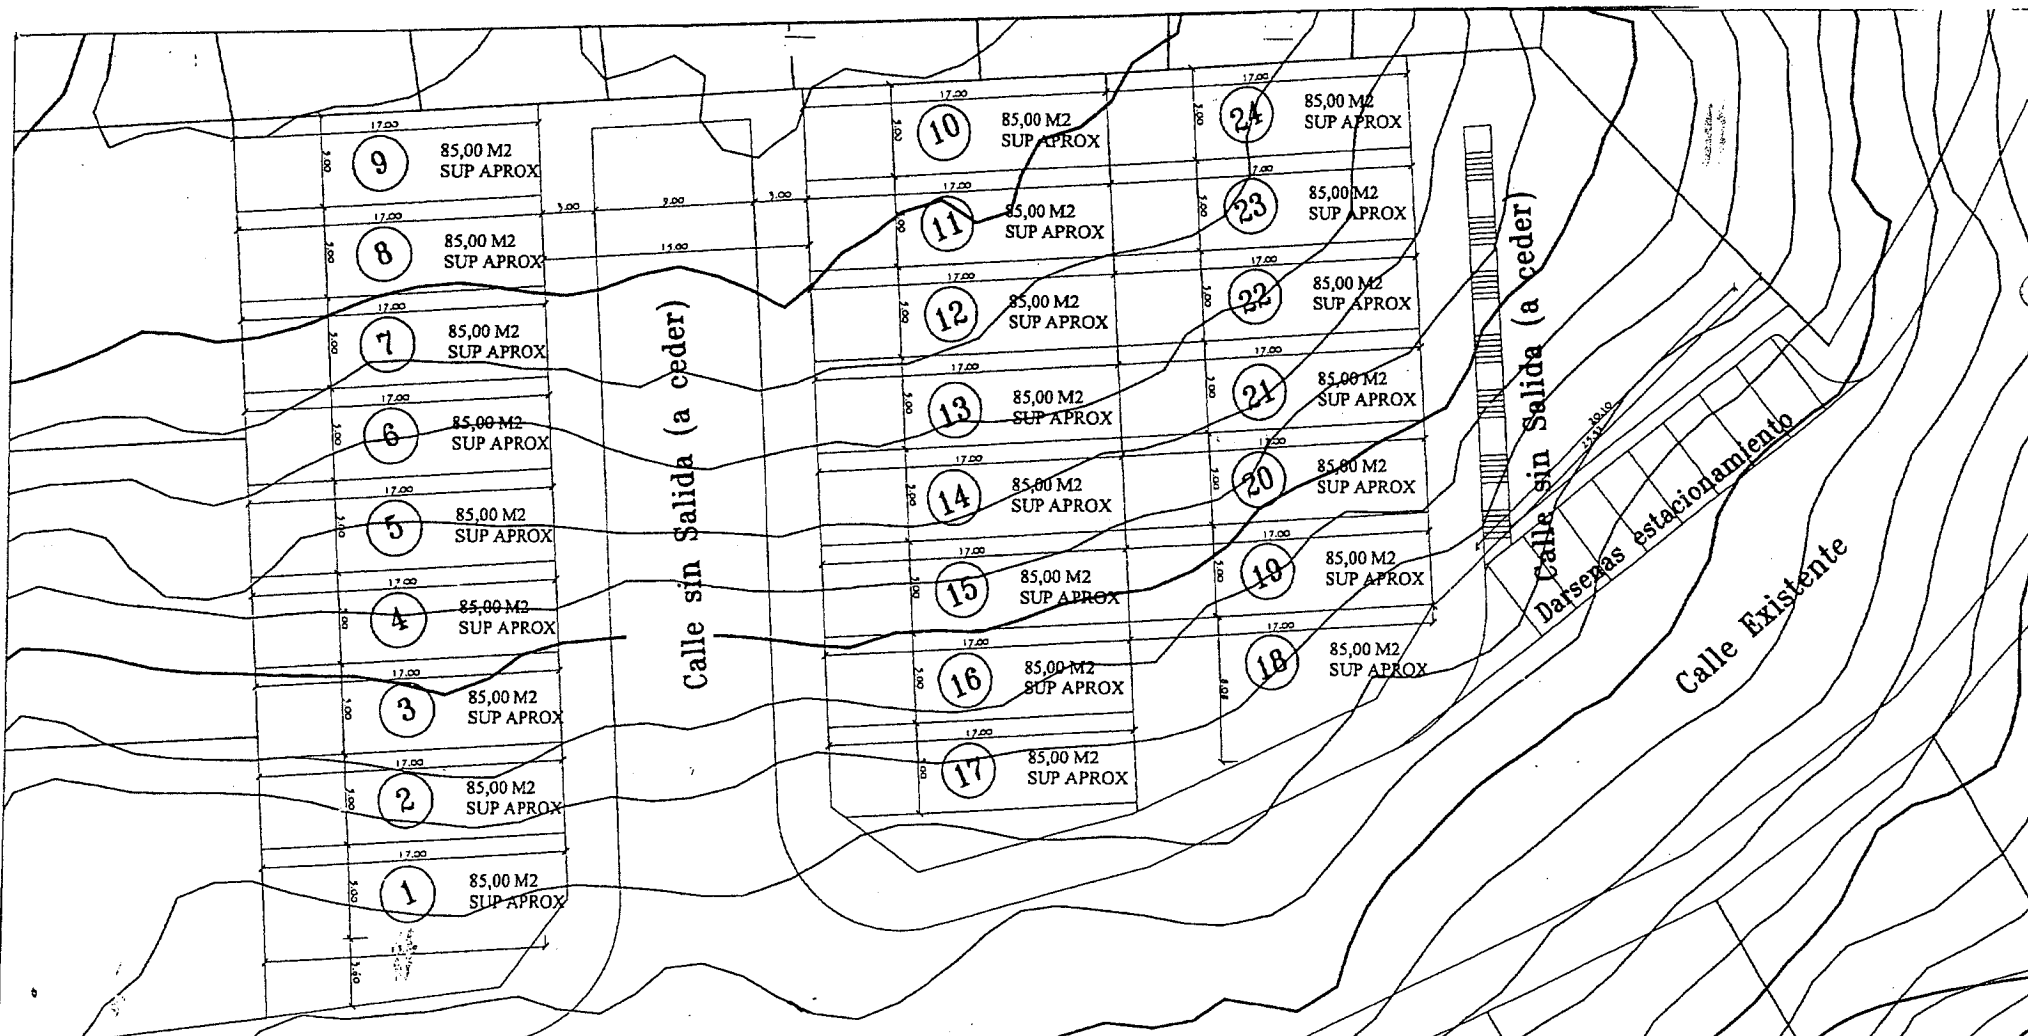 17.00
9
85,00 M2
SUP APROX
5.00
17.00
8
85,00 M2
SUP APROX
5.00
17.00
7
85,00 M2
SUP APROX
5.00
17.00
6
85,00 M2
SUP APROX
5.00
17.00
5
85,00 M2
SUP APROX
5.00
17.00
4
85,00 M2
SUP APROX
5.00
17.00
3
85,00 M2
SUP APROX
5.00
17.00
2
85,00 M2
SUP APROX
5.00
17.00
1
85,00 M2
SUP APROX
5.00
3.00
9.00
3.00
15.00
Calle sin Salida (a ceder)
17.00
10
85,00 M2
SUP APROX
5.00
17.00
11
85,00 M2
SUP APROX
17.00
12
85,00 M2
SUP APROX
5.00
17.00
13
85,00 M2
SUP APROX
5.00
17.00
14
85,00 M2
SUP APROX
5.00
17.00
15
85,00 M2
SUP APROX
5.00
17.00
16
85,00 M2
SUP APROX
5.00
17.00
17
85,00 M2
SUP APROX
17.00
24
85,00 M2
SUP APROX
5.00
17.00
23
85,00 M2
SUP APROX
5.00
17.00
22
85,00 M2
SUP APROX
5.00
17.00
21
85,00 M2
SUP APROX
5.00
17.00
20
85,00 M2
SUP APROX
5.00
17.00
19
85,00 M2
SUP APROX
5.00
17.00
18
85,00 M2
SUP APROX
Calle sin Salida (a ceder)
Darsenas estacionamiento
Calle Existente